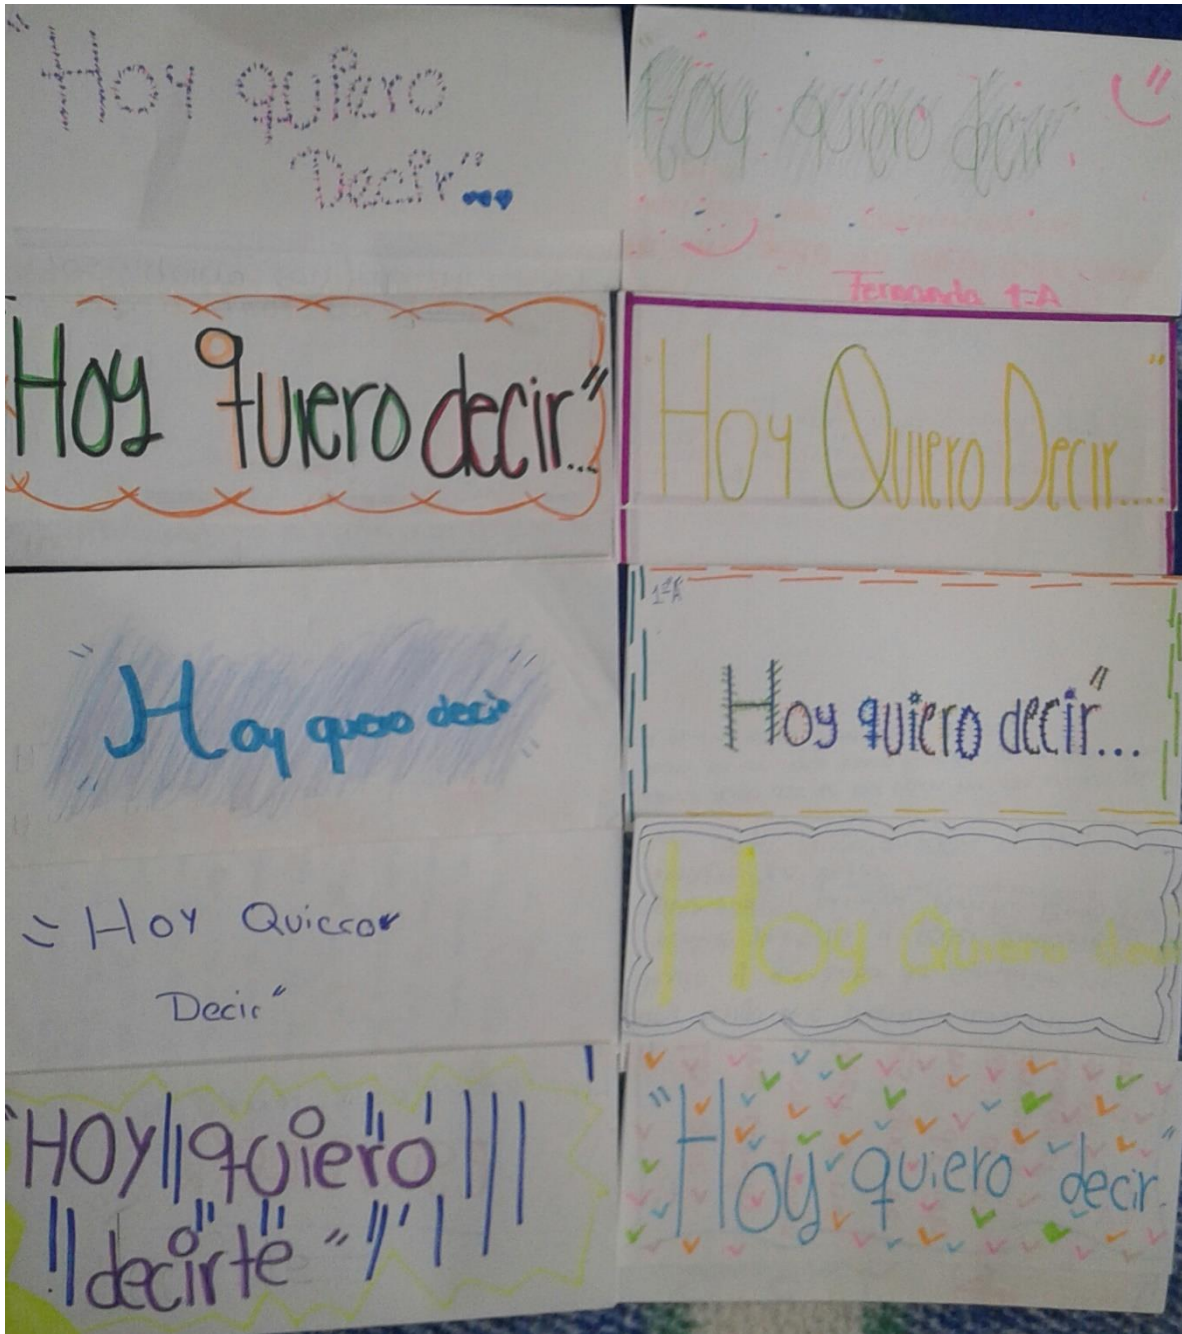 "Hoy quiero
Decir"...
"Hoy quiero decir"
Fernanda 1=A
Hoy quiero decir"...
"Hoy Quiero Decir...."
"Hoy quiero decir"
1ºA
Hoy quiero decir"...
"Hoy Quiero
Decir"
Hoy Quiero dec
"HOY quiero
decirte"
"Hoy quiero decir."